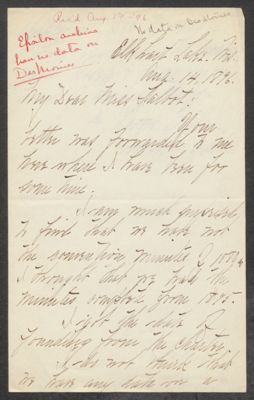 Rec'd Aug. 17-96
No data on Des Moines
Epsilon archives
have no data on
Des Moines
Elkhart Lake, Wis.
Aug. 14, 1896.
My Dear Miss Talbot:
Your
letter was forwarded to me
here where I have been for
some time.
I am much surprised
to find that we have not
the convention minutes of
I thought that we had the
minutes complete from
I got the date of
founding from the charter.
I do not think that
we have any data on a